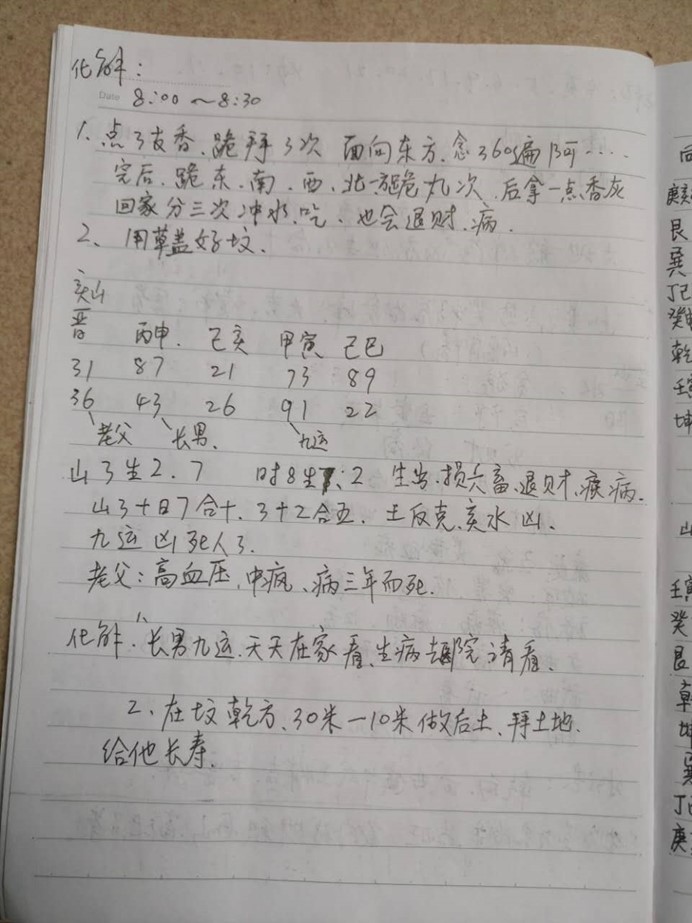 化解:
Date 8:00~8:30
1. 点3支香、跪拜3次 面向东方、念360遍阿……
完后、跪东、南、西、北方跪九次、后拿一点香灰
回家分三次冲水、吃、也会退财、病.
2、用草盖好坟、
亥山
晋 丙申. 己亥 甲寅 己巳
31 87 21 73 89
36 43 26 91 22
老父 长男. 九运
山3生2.7 时8生 2 生出、损六畜、退财、疾病.
山3十日7合十、3十2合五、土反克、亥水凶.
九运凶死人3.
老父:高血压、中疯、病三年而死.
化解:1、长男九运、天天在家看、生病去医院请看.
2、在坟乾方、30米一10米做后土、拜土地.
给他长寿.
向
庚
艮
巽
丁己
癸
乾
壬
坤
山
壬寅
癸
艮
乾
坤
巽
丁己
庚